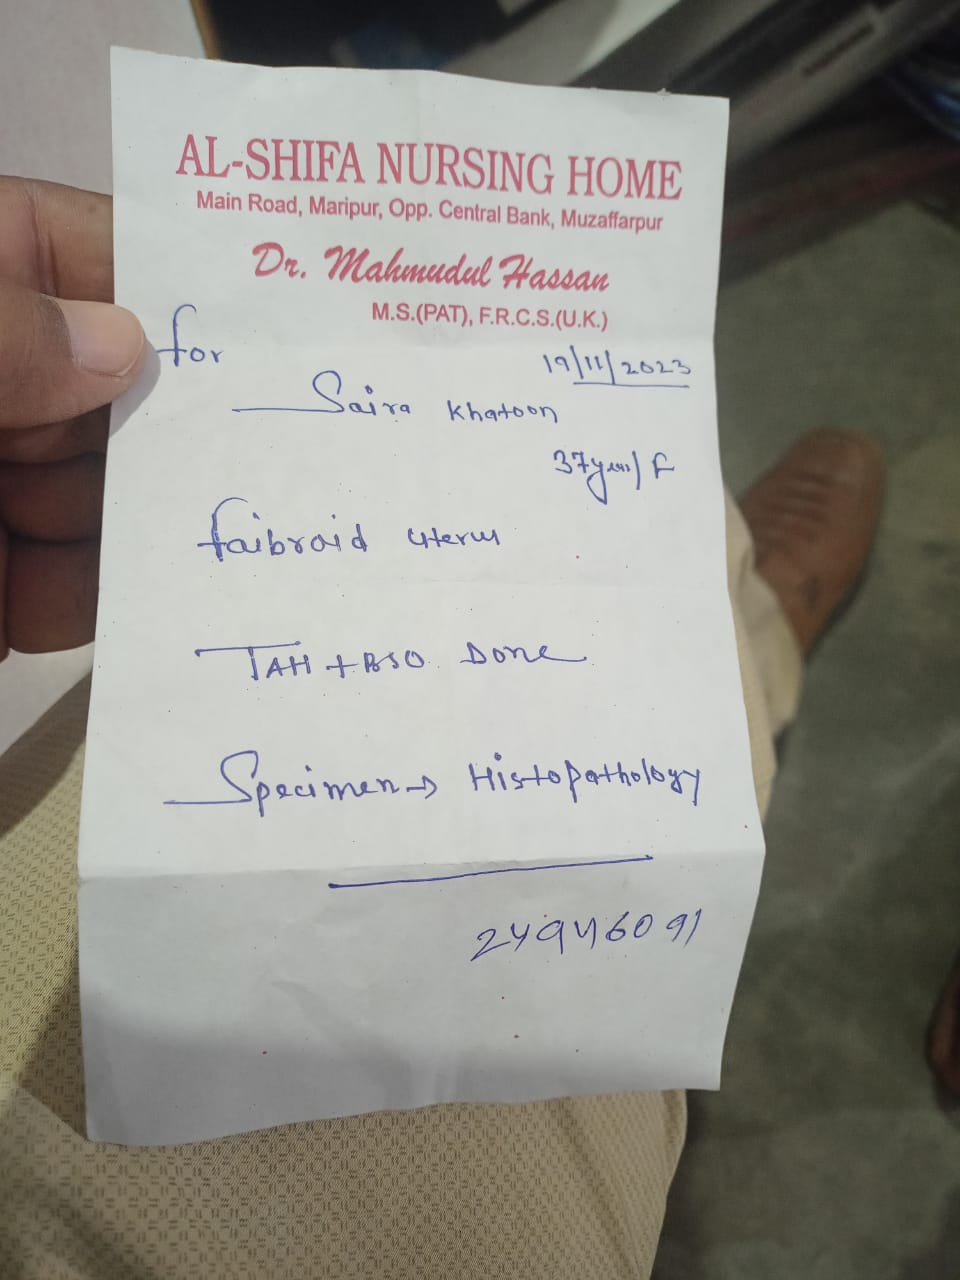 AL-SHIFA NURSING HOME
Main Road, Maripur, Opp. Central Bank, Muzaffarpur
Dr. Mahmudul Hassan
M.S.(PAT), F.R.C.S.(U.K.)
for
19/11/2023
Saira Khatoon
37 / F
faibroid uterus
TAH + BSO Done
Specimen → Histopathology
24946091